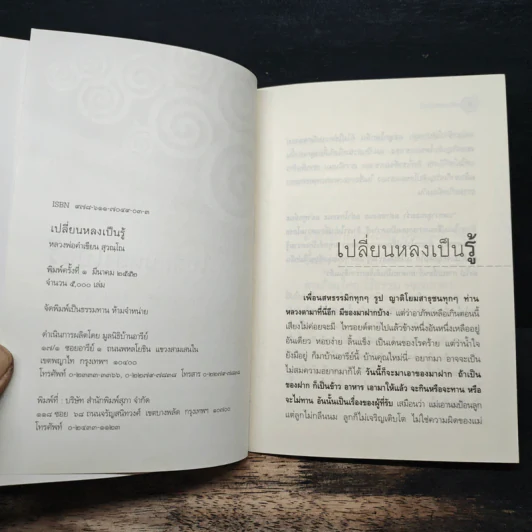 ISBN ๙๗๘-๖๑๑-๗๐๔๙-๐๓-๓
เปลี่ยนหลงเป็นรู้
หลวงพ่อคำเขียน สุวณฺโณ
พิมพ์ครั้งที่ ๑ มีนาคม ๒๕๕๒
จำนวน ๕,๐๐๐ เล่ม
จัดพิมพ์เป็นธรรมทาน ห้ามจำหน่าย
ดำเนินการผลิตโดย มูลนิธิบ้านอารีย์
๑๗/๑ ซอยอารีย์ ๑ ถนนพหลโยธิน แขวงสามเสนใน
เขตพญาไท กรุงเทพฯ ๑๐๔๐๐
โทรศัพท์ โทรสาร
พิมพ์ที่ : บริษัท สำนักพิมพ์สุภา จำกัด
๑๑๔ ซอย ๖๘ ถนนจรัญสนิทวงศ์ เขตบางพลัด กรุงเทพฯ ๑๐๗๐๐
โทรศัพท์
เปลี่ยนหลงเป็นรู้
เพื่อนสหธรรมิกทุกๆ รูป ญาติโยมสาธุชนทุกๆ ท่าน
หลวงตามาที่นี่อีก มีของมาฝากบ้าง แต่ว่าอาภัพเหลือเกินตอนนี้
เสียงไม่ค่อยจะมี ไทรอยด์ตายไปแล้วข้างหนึ่งอันหนึ่งเหลืออยู่
อันเดียว หอบง่าย ลิ้นแข็ง เป็นเดนของโรคร้าย แต่ว่าน้ำใจ
ยังมีอยู่ ก็มาบ้านอารีย์นี้ บ้านคุณใหม่นี่ อยากมา อาจจะเป็น
ไม่สมความอยากมาก็ได้ วันนี้ก็จะมาเอาของมาฝาก ถ้าเป็น
ของฝาก ก็เป็นข้าว อาหาร เอามาให้แล้ว จะกินหรือจะทาน หรือ
จะไม่ทาน อันนั้นเป็นเรื่องของผู้ที่รับ เสมือนว่า แม่เอานมป้อนลูก
แต่ลูกไม่กลืนนม ลูกก็ไม่เจริญเติบโต ไม่ใช่ความผิดของแม่